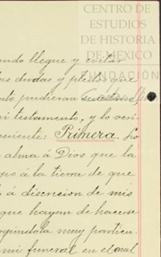 CENTRO DE
ESTUDIOS
DE HISTORIA
DE MEXICO
FUNDACIÓN
ando llegue y evitar
dudas y
pudieran suscitar
mi testamento, y lo
Primera.
alma á Dios que la
á la tierra de que
á discrecion de mis
que hayan de hacerse
muy particu
mi funeral en el cual